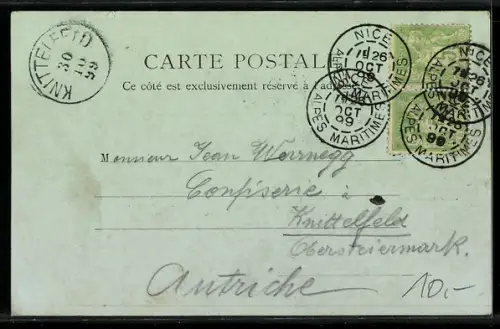 KNITTELFELD
30
10
99
CARTE POSTALE
Ce côté est exclusivement réservé à l'adresse
NICE
26
OCT
99
ALPES MARITIMES
NICE
OCT
99
ALPES MARITIMES
NICE
26
OCT
ALPES MARITIMES
OCT
99
ALPES MARITIMES
Monsieur Jean
Confiserie à
Knittelfeld
Obersteiermark.
Autriche
10.-